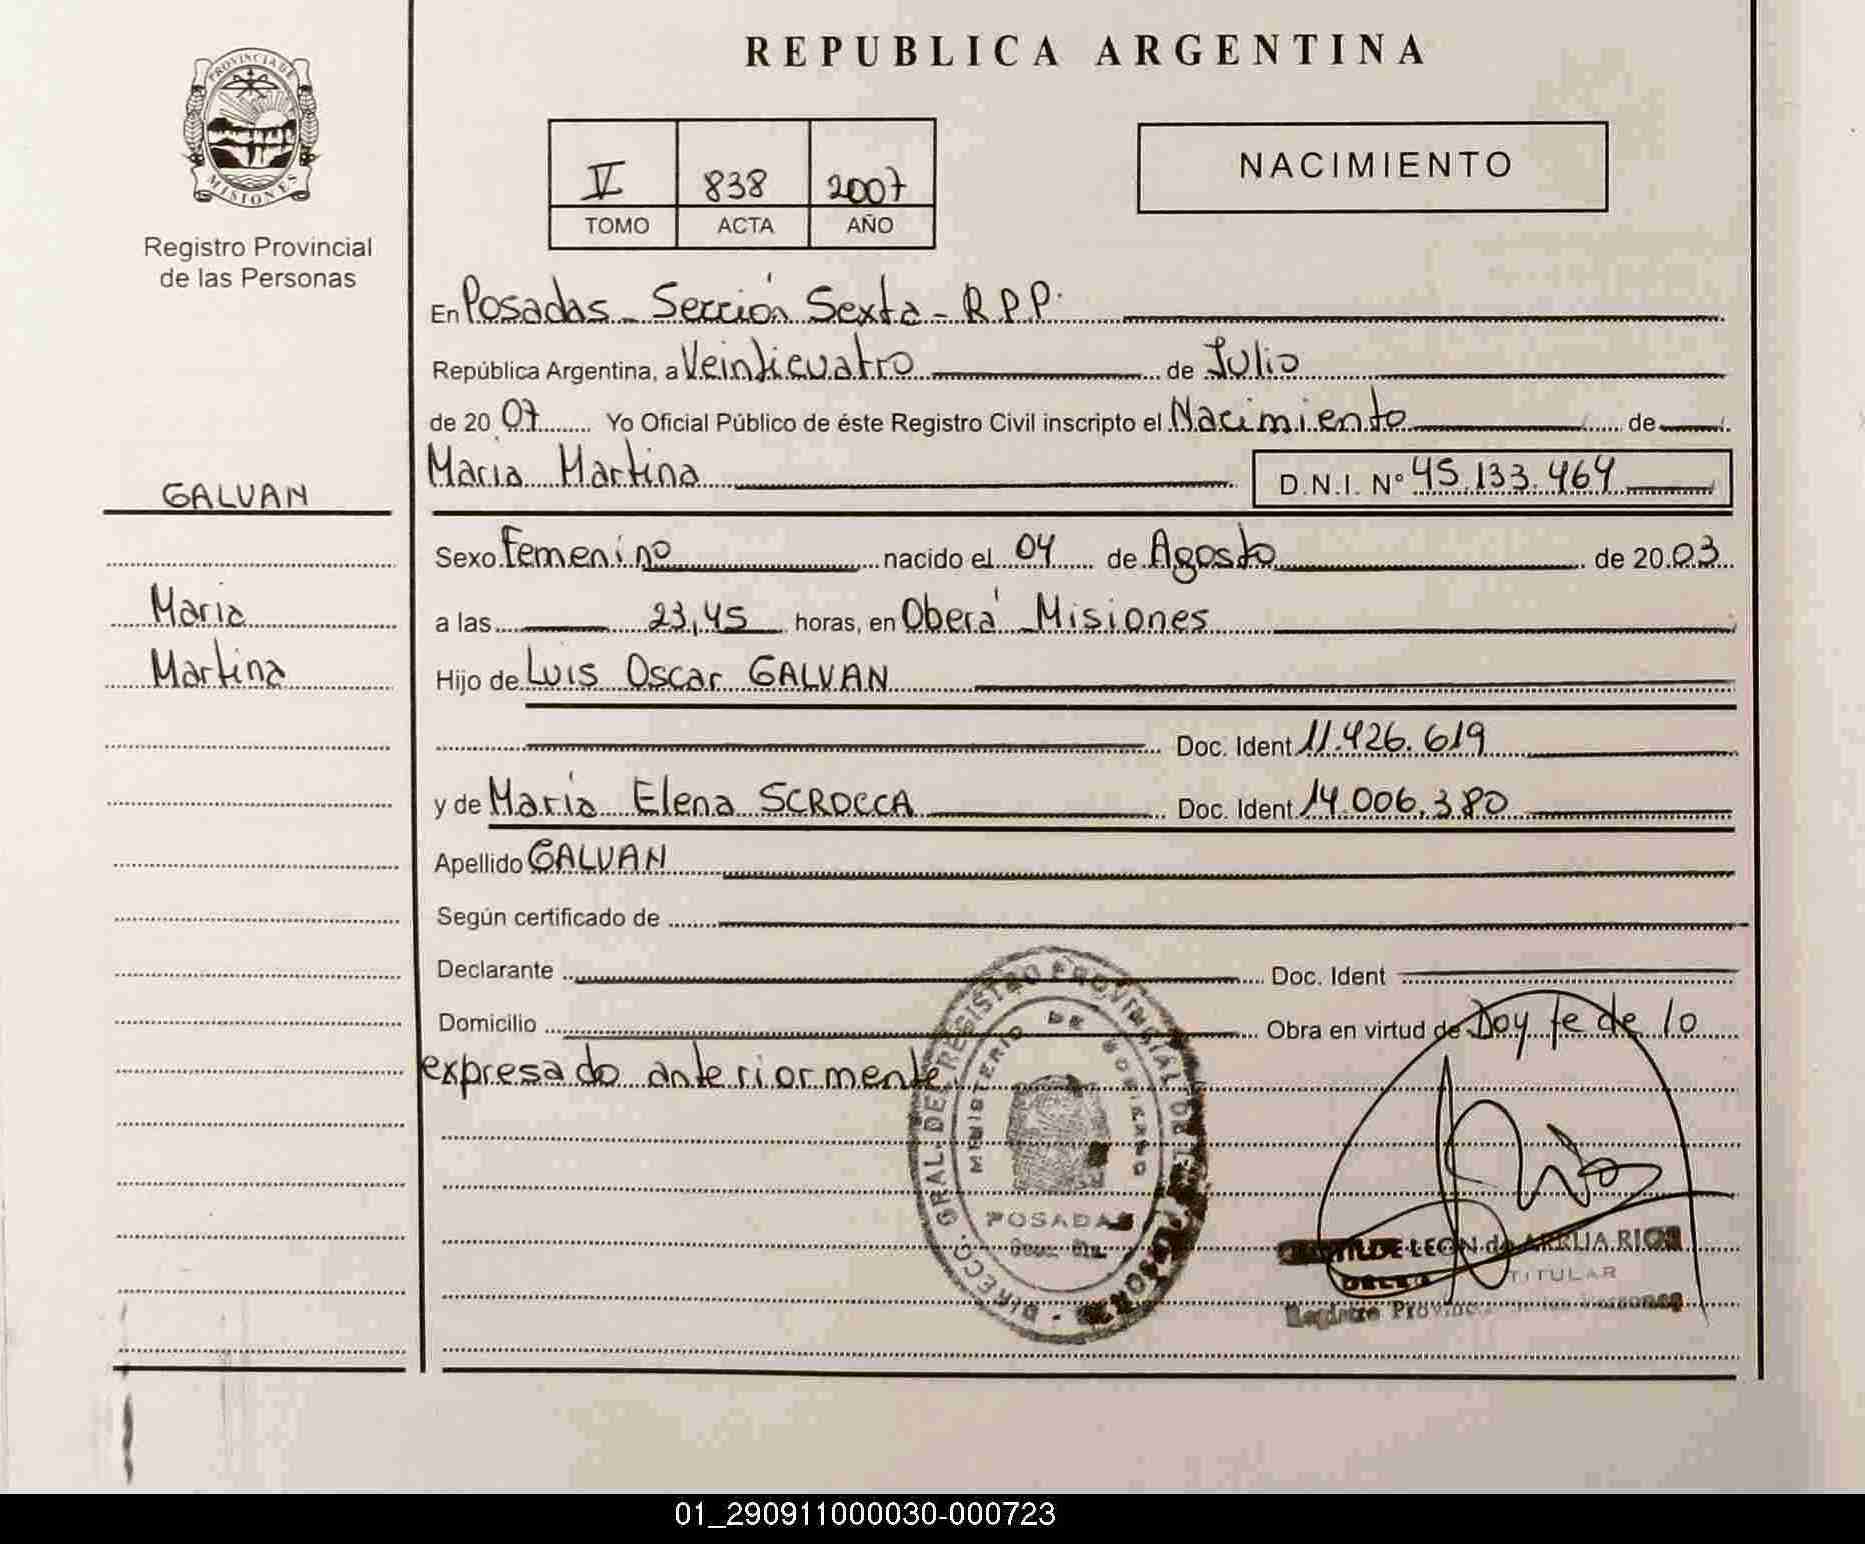 REPUBLICA ARGENTINA
PROVINCIA DE
MISIONES
Registro Provincial
de las Personas
V 838 2007
TOMO ACTA AÑO
NACIMIENTO
En Posadas - Sección Sexta - R.P.P.
República Argentina, a Veinticuatro de Julio
de 20 07 Yo Oficial Público de éste Registro Civil inscripto el Nacimiento de
Maria Martina D.N.I. N° 45.133.464
GALVAN
Sexo Femenino nacido el 04 de Agosto de 20 03
Maria
a las 23,45 horas, en Oberá Misiones
Martina
Hijo de Luis Oscar GALVAN
Doc. Ident 11.426.619
y de María Elena SCROCCA Doc. Ident 14.006.380
Apellido GALVAN
Según certificado de
Declarante Doc. Ident
Domicilio Obra en virtud de Doy fe de lo
expresado anteriormente
DIRECC. GRAL. DEL REGISTRO PROVINCIAL DE
MINISTERIO DE GOBIERNO
POSADAS
LEON de ARRUA RIOS
TITULAR
Registro
01_290911000030-000723